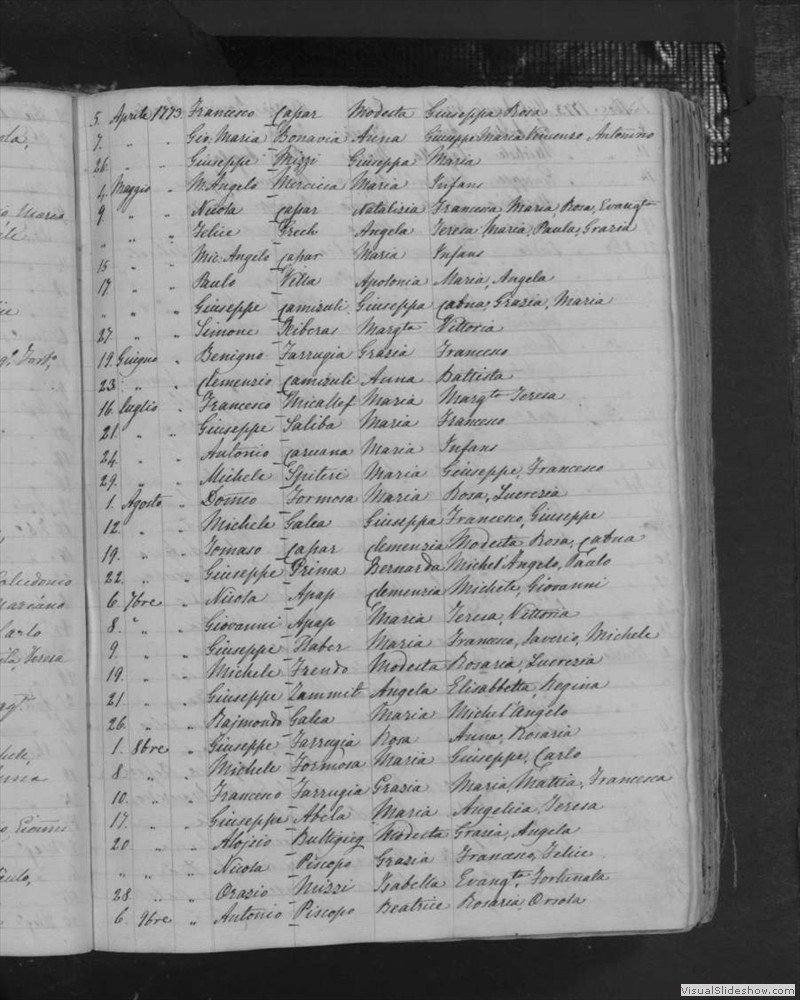 5. Aprile 1773 Francesco Capar Modesta Giuseppa Rosa
7. " " Gio. Maria Bonavia Anna Giuseppe Maria Vincenzo Antonino
26. " " Giuseppe Mizzi Giuseppa Maria
4 Maggio " M. Angelo Mercieca Maria Infans
9 " " Nicola Capar Natalizia Francesca Maria, Rosa, Evangta
" " " Felice Grech Angela Teresa, Maria, Paula, Grazia
15 " " Mic: Angelo Capar Maria Infans
17 " " Paulo Vella Apolonia Maria, Angela
" " " Giuseppe Camisuli Giuseppa Catna, Grazia, Maria
27. " " Simone Xiberas Margta Vittoria
19. Guigno " Benigno Farrugia Grazia Francesco
23. " " Clemenzio Camisuli Anna Battista
16. Luglio " Francesco Micallef Maria Margta Teresa
21. " " Giuseppe Saliba Maria Francesco
24. " " Antonio Caruana Maria Infans
29. " " Michele Spiteri Maria Giuseppe, Francesco
1. Agosto " Domco Formosa Maria Rosa, Lucrezia
12. " " Michele Galea Giuseppa Francesco, Giuseppe
19. " " Tomaso Capar Clemenzia Modesta Rosa, Catna
22. " " Giuseppe Prima Bernarda Michel'Angelo, Paulo
6. 7bre " Nicola Apap Clemenzia Michele, Giovanni
8. " " Giovanni Apap Maria Teresa, Vittoria
9. " " Giuseppe Xaber Maria Francesco, Saverio, Michele
19. " " Michele Frendo Modesta Rosaria, Lucrezia
21 " " Giuseppe Zammit Angela Elisabbetta, Regina
26. " " Raimondo Galea Maria Michel'Angelo
1. 8bre " Giuseppe Farrugia Rosa Anna, Rosaria
8 " " Michele Formosa Maria Giuseppe, Carlo
10. " " Francesco Farrugia Grazia Maria, Mattia, Francesca
17. " " Giuseppe Abela Maria Angelica, Teresa
20 " " Aloisio Buttigieg Modesta Grazia, Angela
" " " Nicola Piscopo Grazia Francesco, Felice
28 " " Orazio Mizzi Isabella Evangta, Fortunata
6. 9bre " Antonio Piscopo Beatrice Rosaria, Orsola
VisualSlideshow.com